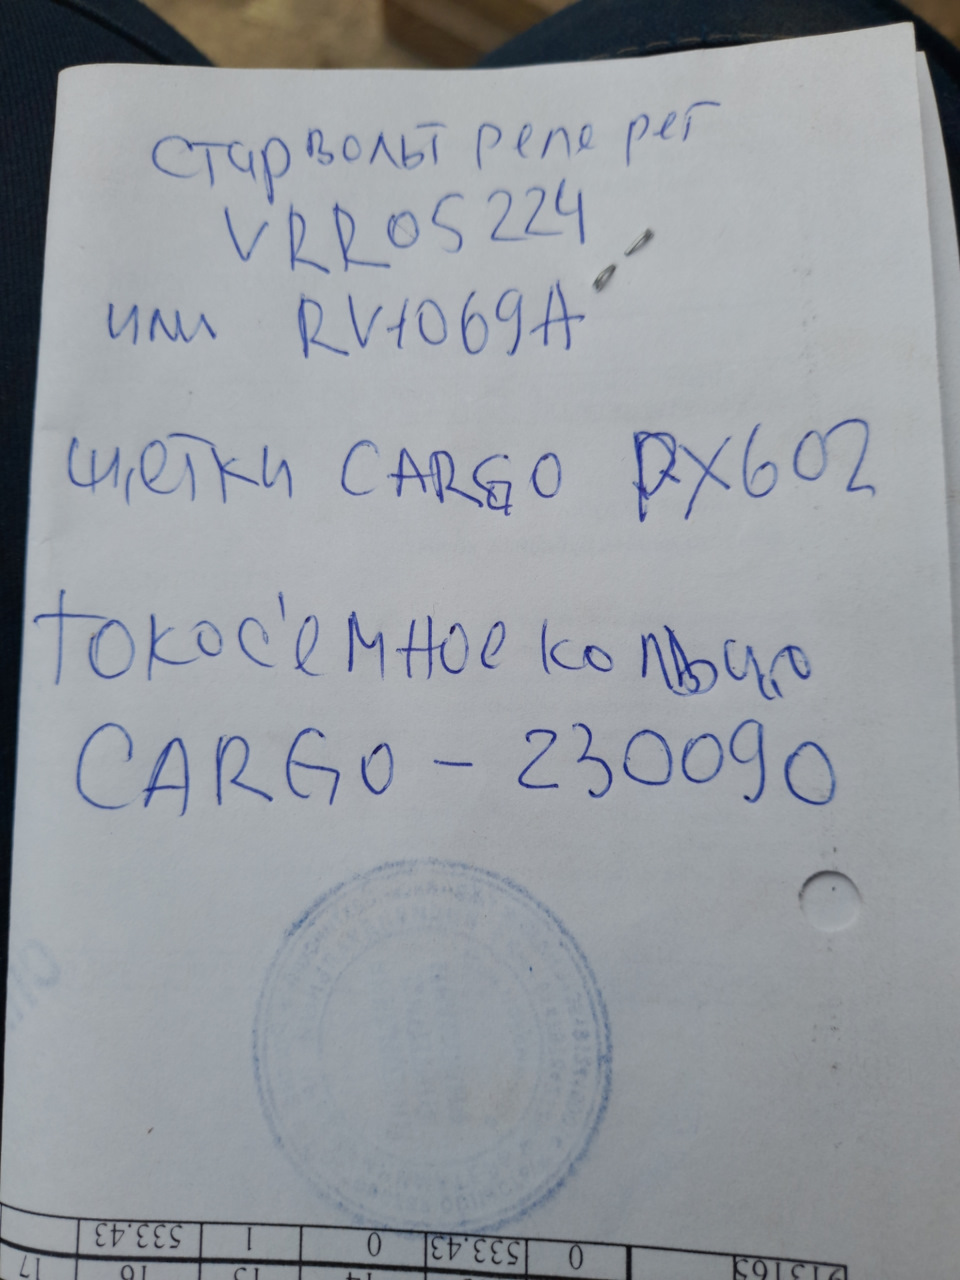 старвольт реле рег
VRR05224
или RV1069A
щетки CARGO PX602
токос'емное кольцо
CARGO - 230090
533.43 1 0 533.43 0
17 16 15 14